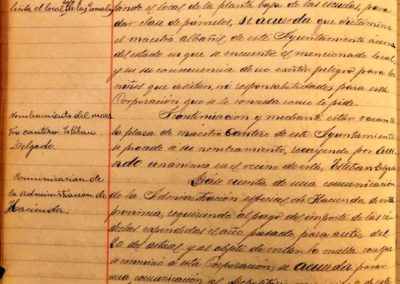 licita el local de las Escuelas
Nombramiento del maes-
tro cantero Esteban
Delgado.
Comunicacion de
la administracion de
Hacienda.
el local de la planta baja de las escuelas, para
dar clase de párvulos, se acuerda que dictamine
el maestro albañil de este Ayuntamiento acerca
del estado en que se encuentre el mencionado local,
y en su consecuencia de no existir peligro para los
niños que asistan, ni responsabilidades para esta
Corporacion que se le conceda como lo pide.
A continuacion y mediante estar vacante
la plaza de maestro Cantero de este Ayuntamiento
se procede a su nombramiento, recayendo por acuer
do unanime en el vecino de esta, Esteban Delgado
Dióse cuenta de una comunicación
de la Administracion especial de Hacienda de esta
provincia, requiriendo al pago del importe de las cé
dulas expendidas el año pasado para antes del
20 del actual, y al objeto de evitar la multa con que
se conminó a esta Corporacion, se acuerda pasar
una comunicación al